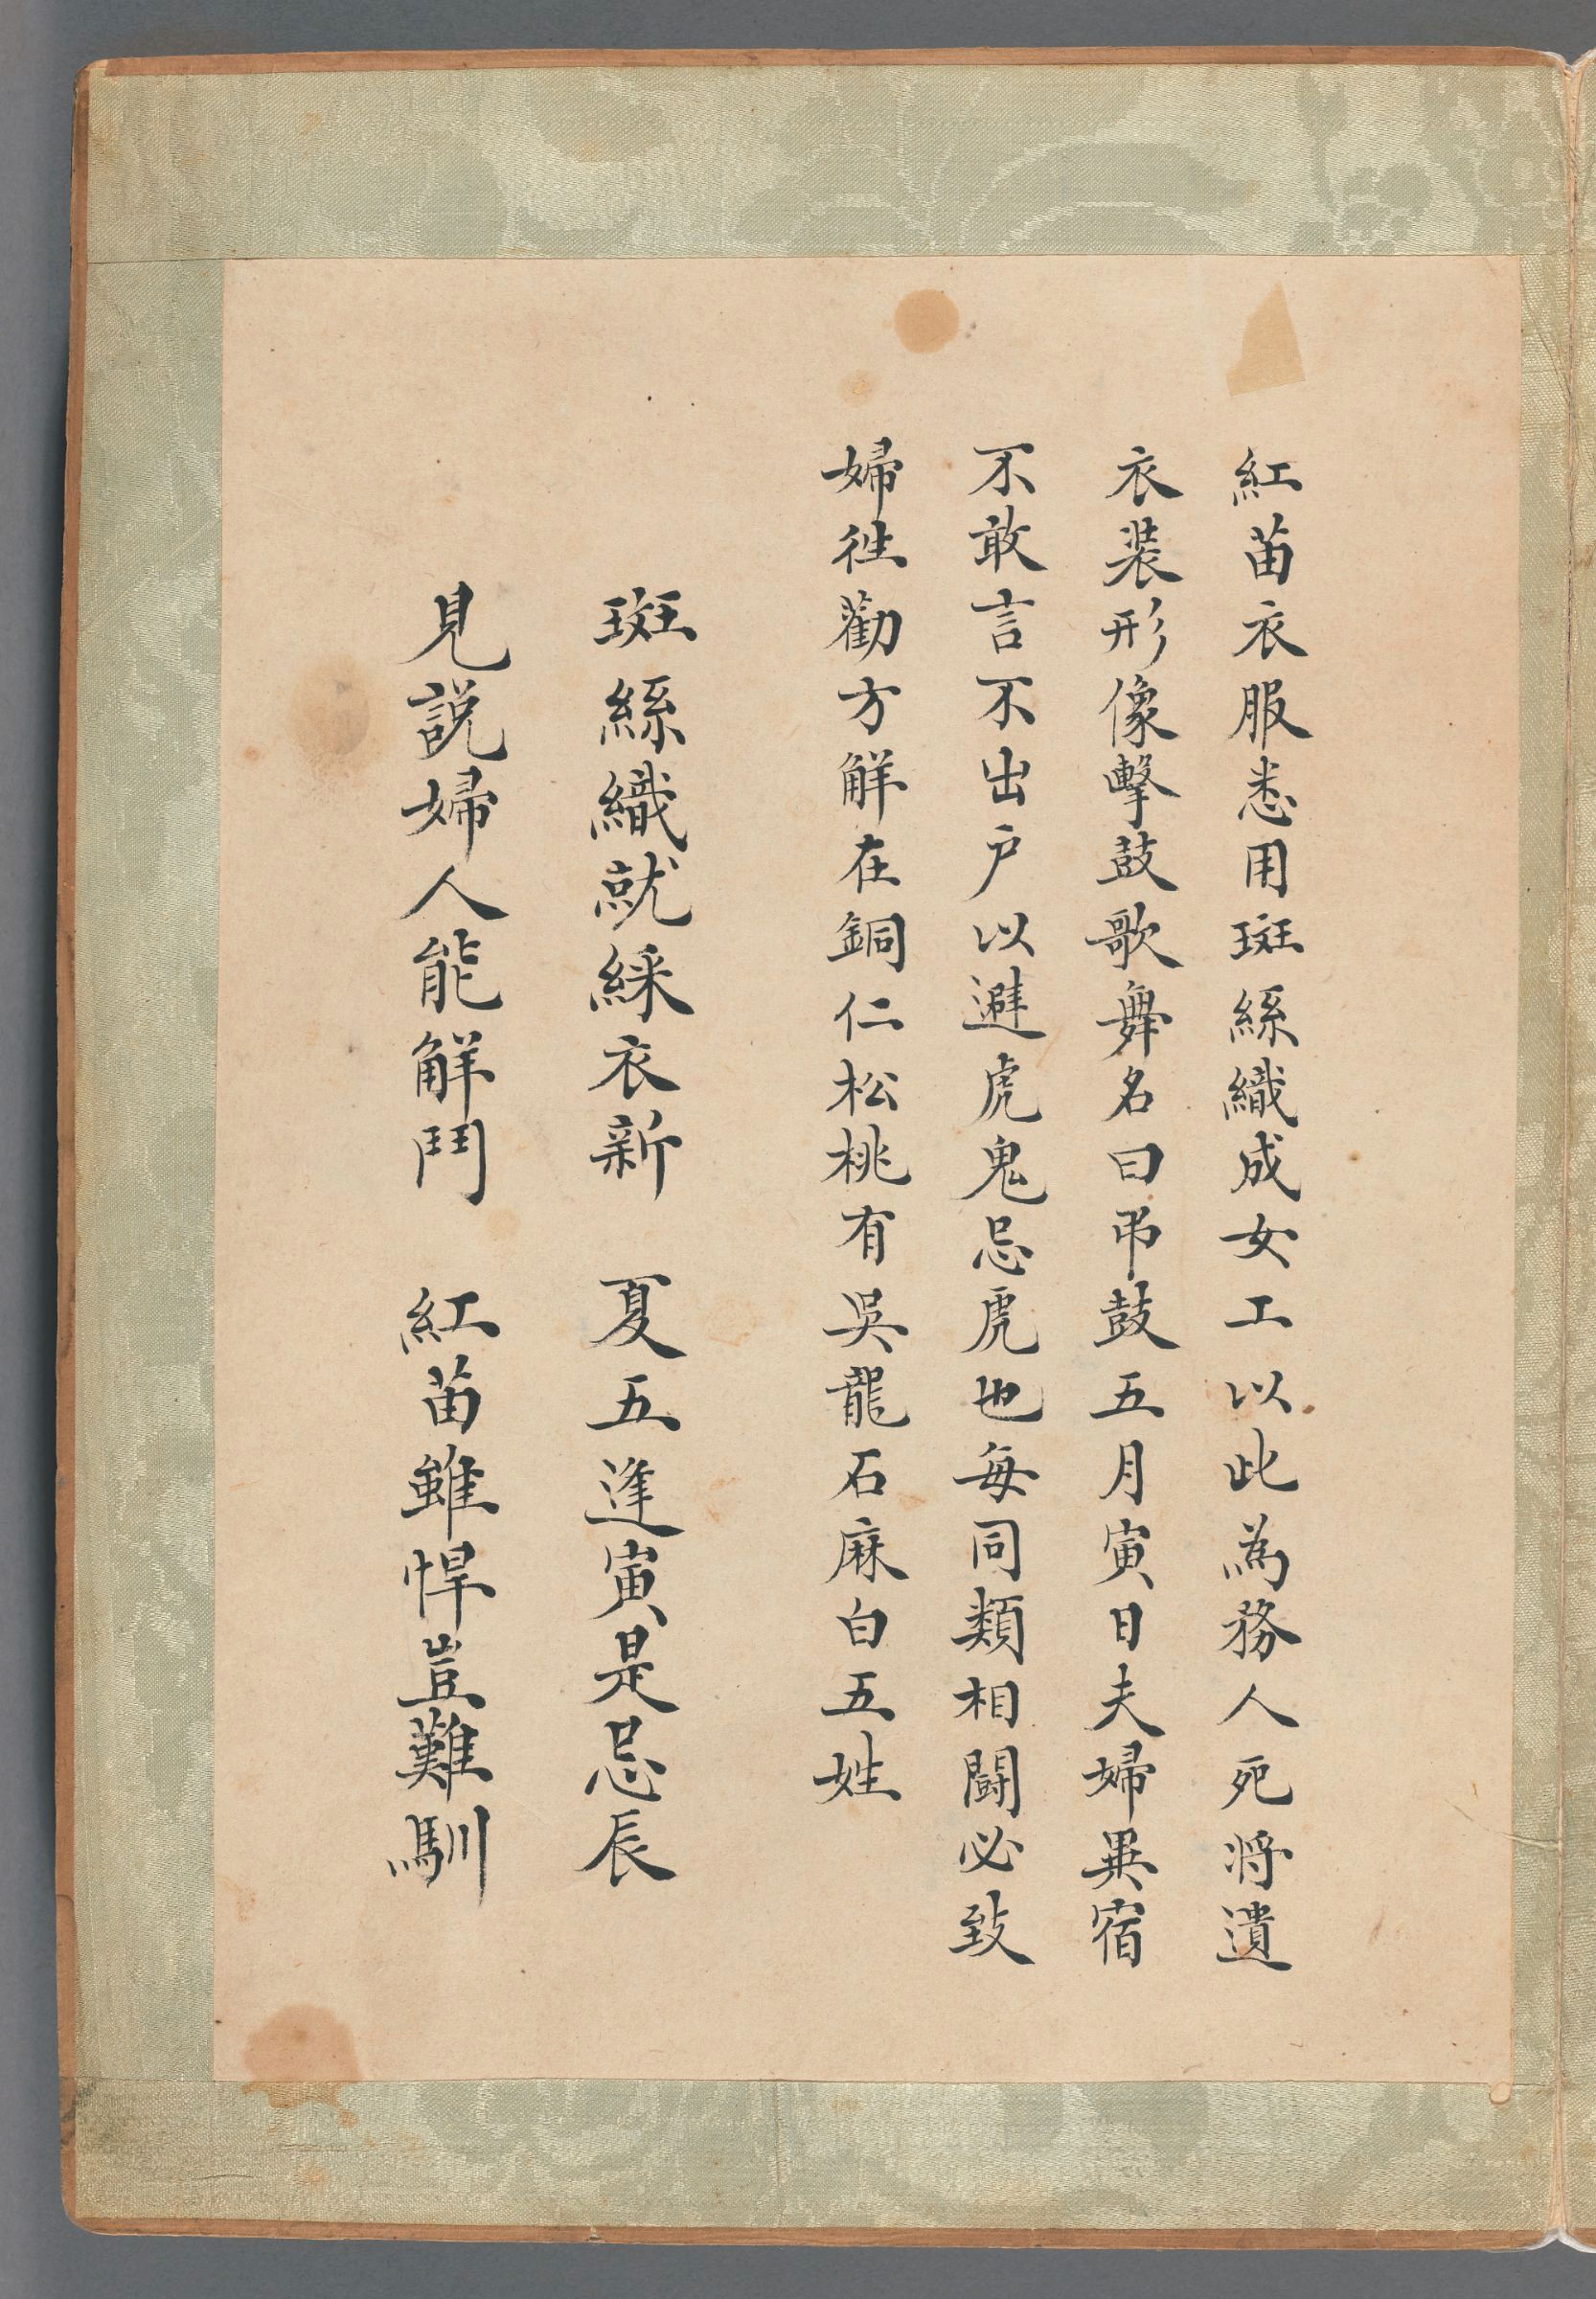 紅苗衣服悉用斑絲織成女工以此為務人死将遺
衣裝形像擊鼓歌舞名曰弔鼓五月寅日夫婦異宿
不敢言不出戶以避虎鬼忌虎也每同類相鬪必致
婦徃勸方觧在銅仁松桃有吳龍石麻白五姓
斑絲織就綵衣新　夏五逢寅是忌辰
見説婦人能觧鬥　紅苗雖悍豈難馴